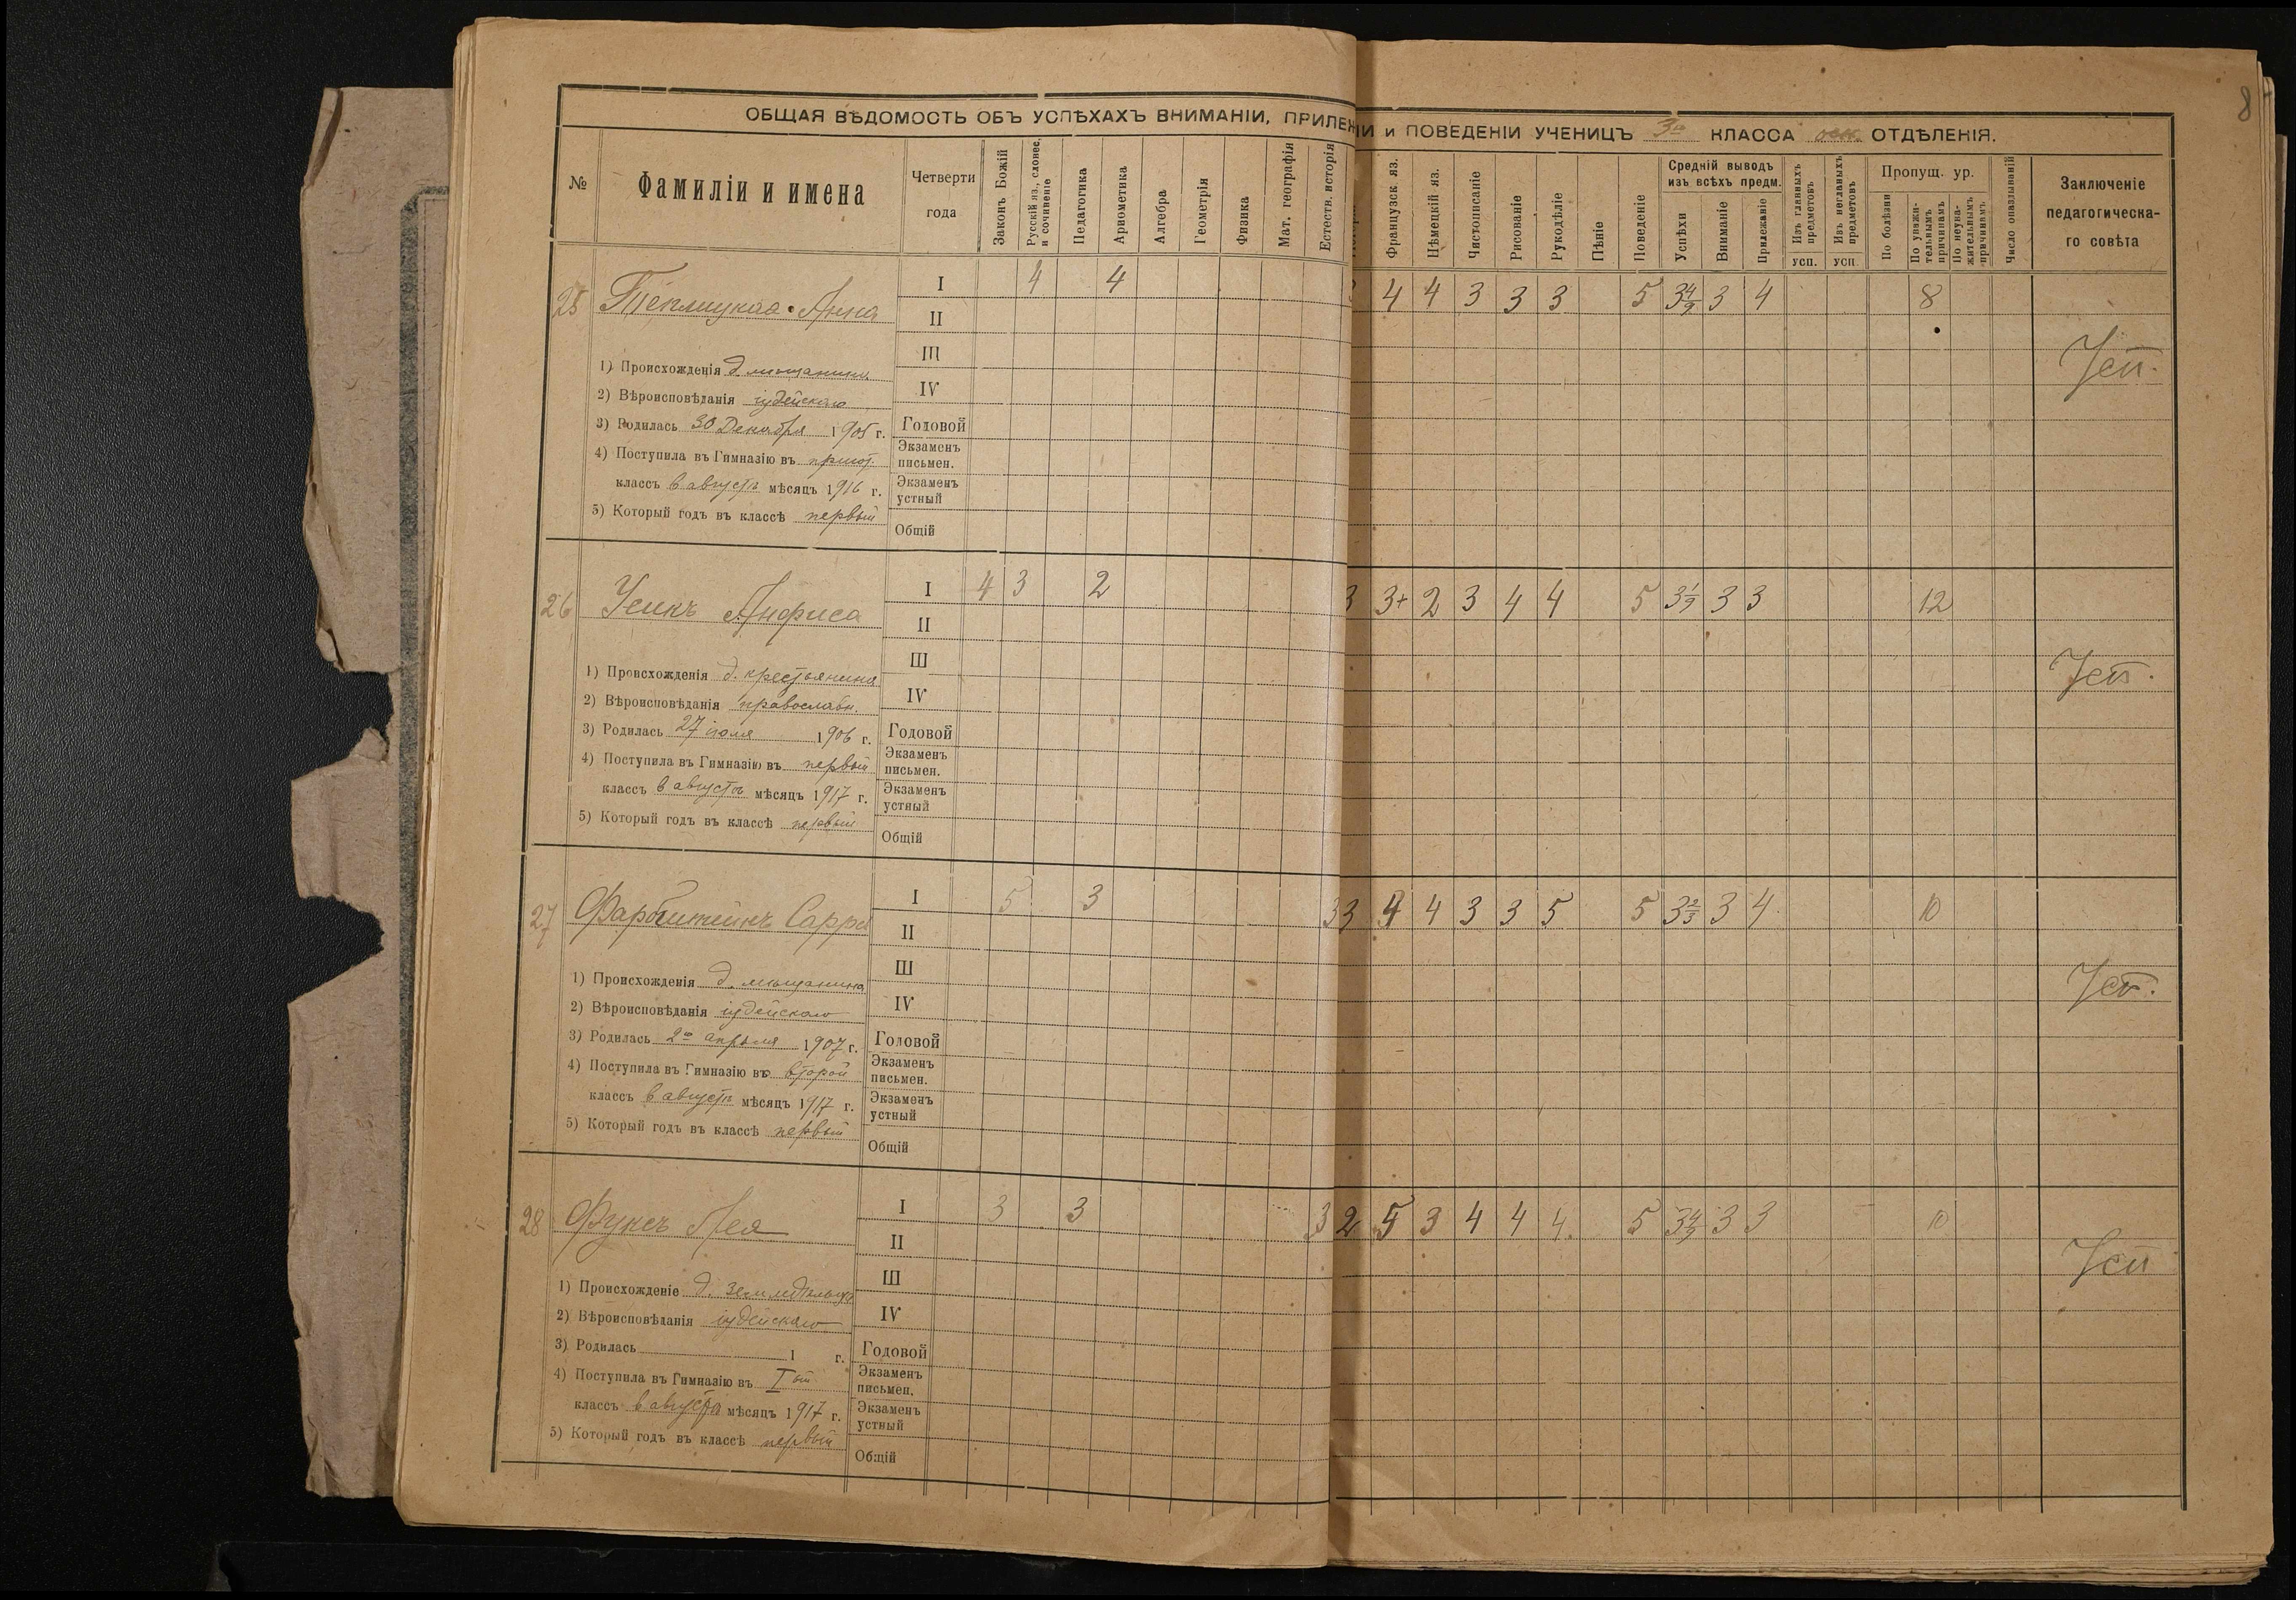 8
ОБЩАЯ ВѢДОМОСТЬ ОБЪ УСПѢХАХЪ ВНИМАНІИ, ПРИЛЕЖ ІИ и ПОВЕДЕНІИ УЧЕНИЦЪ 3го КЛАССА осн. ОТДѢЛЕНІЯ.
№ Фамиліи и имена Четверти года Законъ Божій Русскій яз., словес. и сочиненіе Педагогика Ариѳметика Алгебра Геометрія Физика Мат. географія Естеств. исторія Французск. яз. Нѣмецкій яз. Чистописаніе Рисованіе Рукодѣліе Пѣніе Поведеніе Средній выводъ изъ всѣхъ предм. Успѣхи Вниманіе Прилежаніе Изъ главныхъ предметовъ усп. Изъ неглавныхъ предметовъ усп. Пропущ. ур. По болѣзни По уважительнымъ причинамъ По неуважительнымъ причинамъ Число опаздываній Заключеніе педагогическаго совѣта
25 Теплицкая Анна I 4 4 4 4 3 3 3 5 3 4/9 3 4 8
II
III Усп.
1) Происхожденія д. мѣщанина
IV
2) Вѣроисповѣданія іудейскаго
3) Родилась 30 Декабря 1905 г. Годовой
4) Поступила въ Гимназію въ пригот. Экзаменъ письмен.
классъ въ августѣ мѣсяцъ 1916 г. Экзаменъ устный
5) Который годъ въ классѣ первый Общій
26 Усикъ Анфиса I 4 3 2 3 3+ 2 3 4 4 5 3 1/9 3 3 12
II
III Усп.
1) Происхожденія д. крестьянина
IV
2) Вѣроисповѣданія православн.
3) Родилась 27 іюля 1906 г. Годовой
4) Поступила въ Гимназію въ первый Экзаменъ письмен.
классъ въ августѣ мѣсяцъ 1917 г. Экзаменъ устный
5) Который годъ въ классѣ первый Общій
27 Фарбштейнъ Сарра I 5 3 3 3 4 4 3 3 5 5 3 2/3 3 4 10
II
III Усп.
1) Происхожденія д. мѣщанина
IV
2) Вѣроисповѣданія іудейскаго
3) Родилась 2го апрѣля 1907 г. Годовой
4) Поступила въ Гимназію въ второй Экзаменъ письмен.
классъ въ августѣ мѣсяцъ 1917 г. Экзаменъ устный
5) Который годъ въ классѣ первый Общій
28 Фуксъ Лея I 3 3 3 2 5 3 4 4 4 5 3 4/9 3 3 10
II
III Усп
1) Происхожденіе д. земледѣльца
IV
2) Вѣроисповѣданія іудейскаго
3) Родилась 1 г. Годовой
4) Поступила въ Гимназію въ Iый Экзаменъ письмен.
классъ въ августѣ мѣсяцъ 1917 г. Экзаменъ устный
5) Который годъ въ классѣ первый Общій